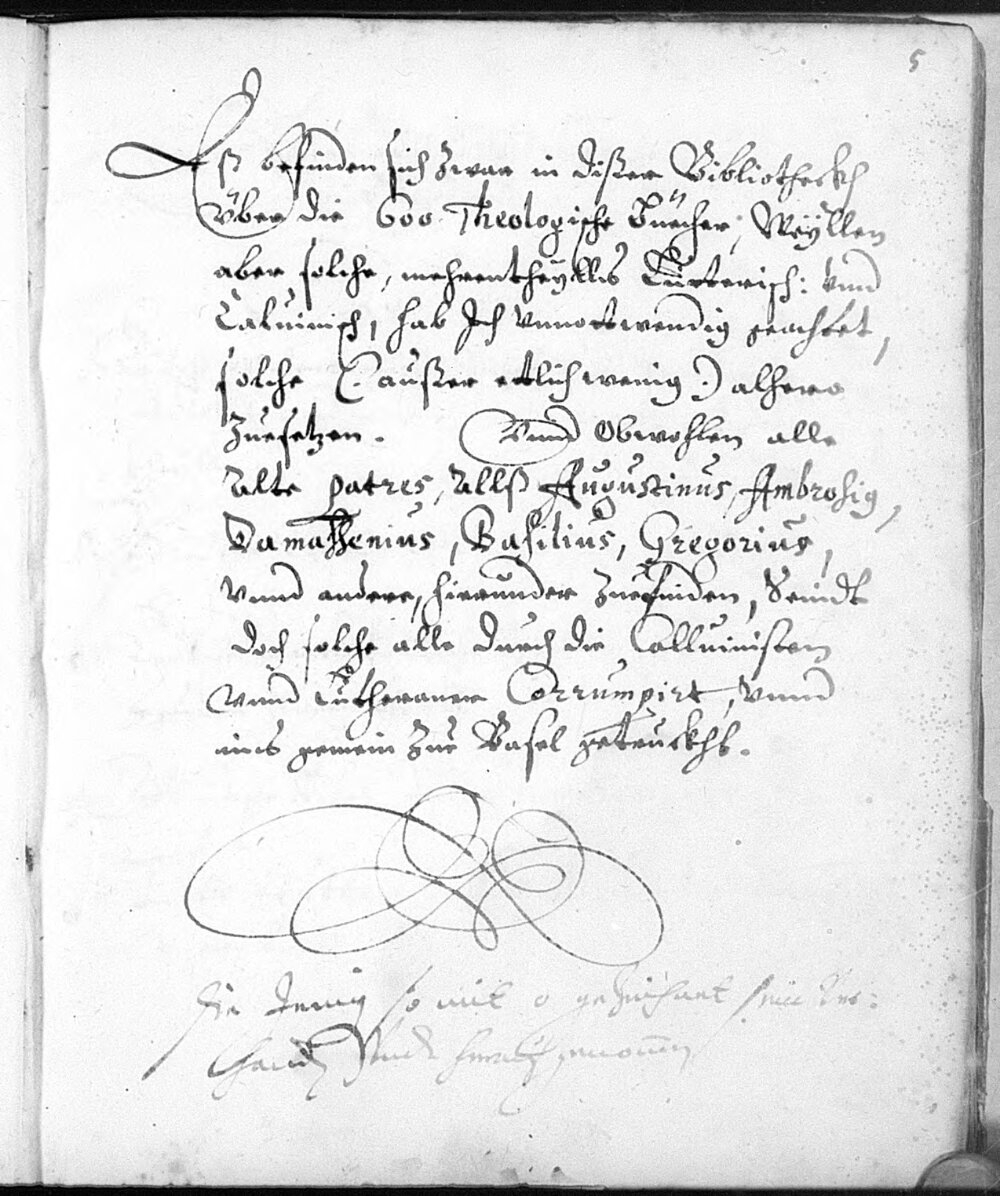 5
Eß befinden sich zwar in dißer Bibliotheckh
Vber die 600 Theologische Büecher, Weyllen
aber solche, mehrentheylls Lutterisch: vnd
Caluinisch, hab Ich vnnottwendig geachtet,
solche (: außer ettlich wenig :) alhero
Zuesetzen. Vnnd Obwohlen alle
Alte patres, Allß Augustinus, Ambrosig,
Damaßenius, Basilius, Gregorius,
vnnd andere, hierunder Zuefinden, Seindt
doch solche alle durch die Calluinisten
vnnd Lutheraner Corrumpirt, vnnd
ins gemein Zue Basel getruckht.
die Jenig so mit o gezeichnet sein